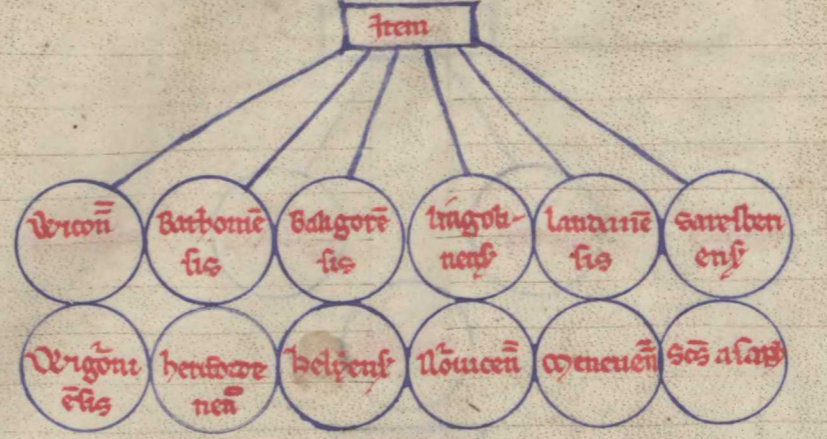 Item
Wıtoñ
Bathoniē
sis
Bangorē
sis
lingolı-
nens
landauē
sis
saresberi
ens
Wigorni
ēsis
herefordē
neñ
helyens
Norwiceñ
meneueñ
scs asaph